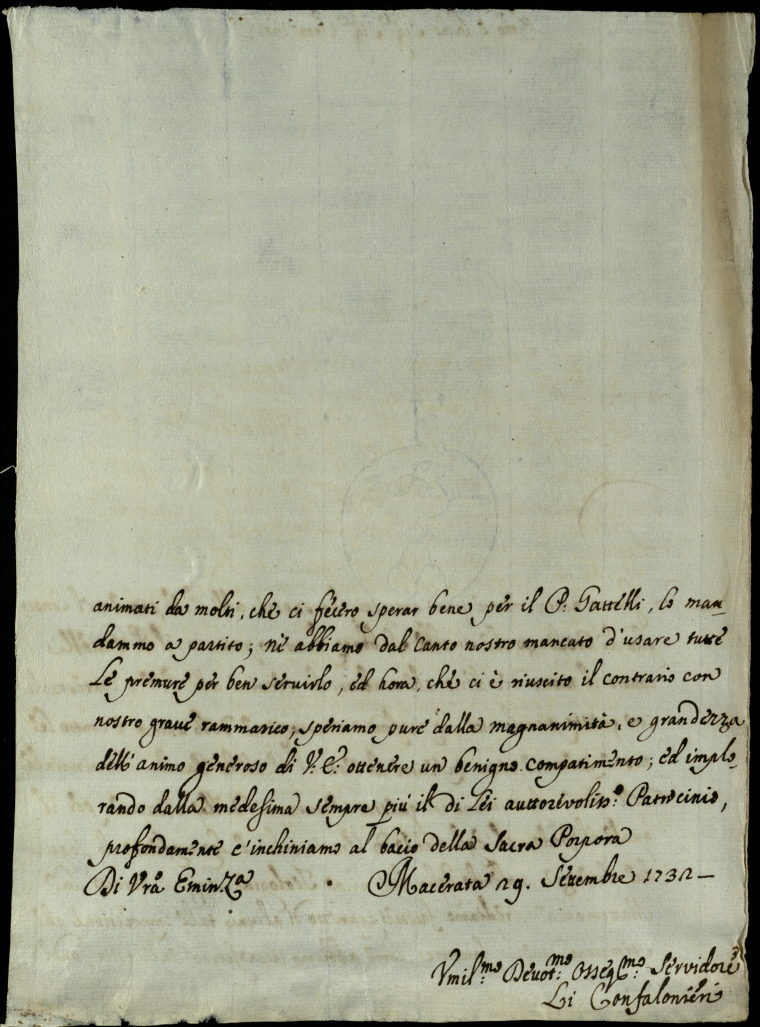 animati da molti, che ci fecero sperar bene per il P. Gattelli, lo man-
dammo a partito; nè abbiamo dal Canto nostro mancato d'usare tutte
Le premure per ben servirlo, ed hora, che ci è riuscito il contrario con
nostro grave rammarico, speriamo pure dalla magnanimità, e grandezza
dell'animo generoso di V. E. ottenere un benigno compatimento; ed implo-
rando dalla medesima sempre più il di Lei auttorevoliss.o Patrocinio,
profondamente c'inchiniamo al bacio della Sacra Porpora
Di Vrã Eminza Macerata 29. Settembre 1732 —
Vmil.mo Devot.mo Osseq.mo Servidore
Li Confalonieri